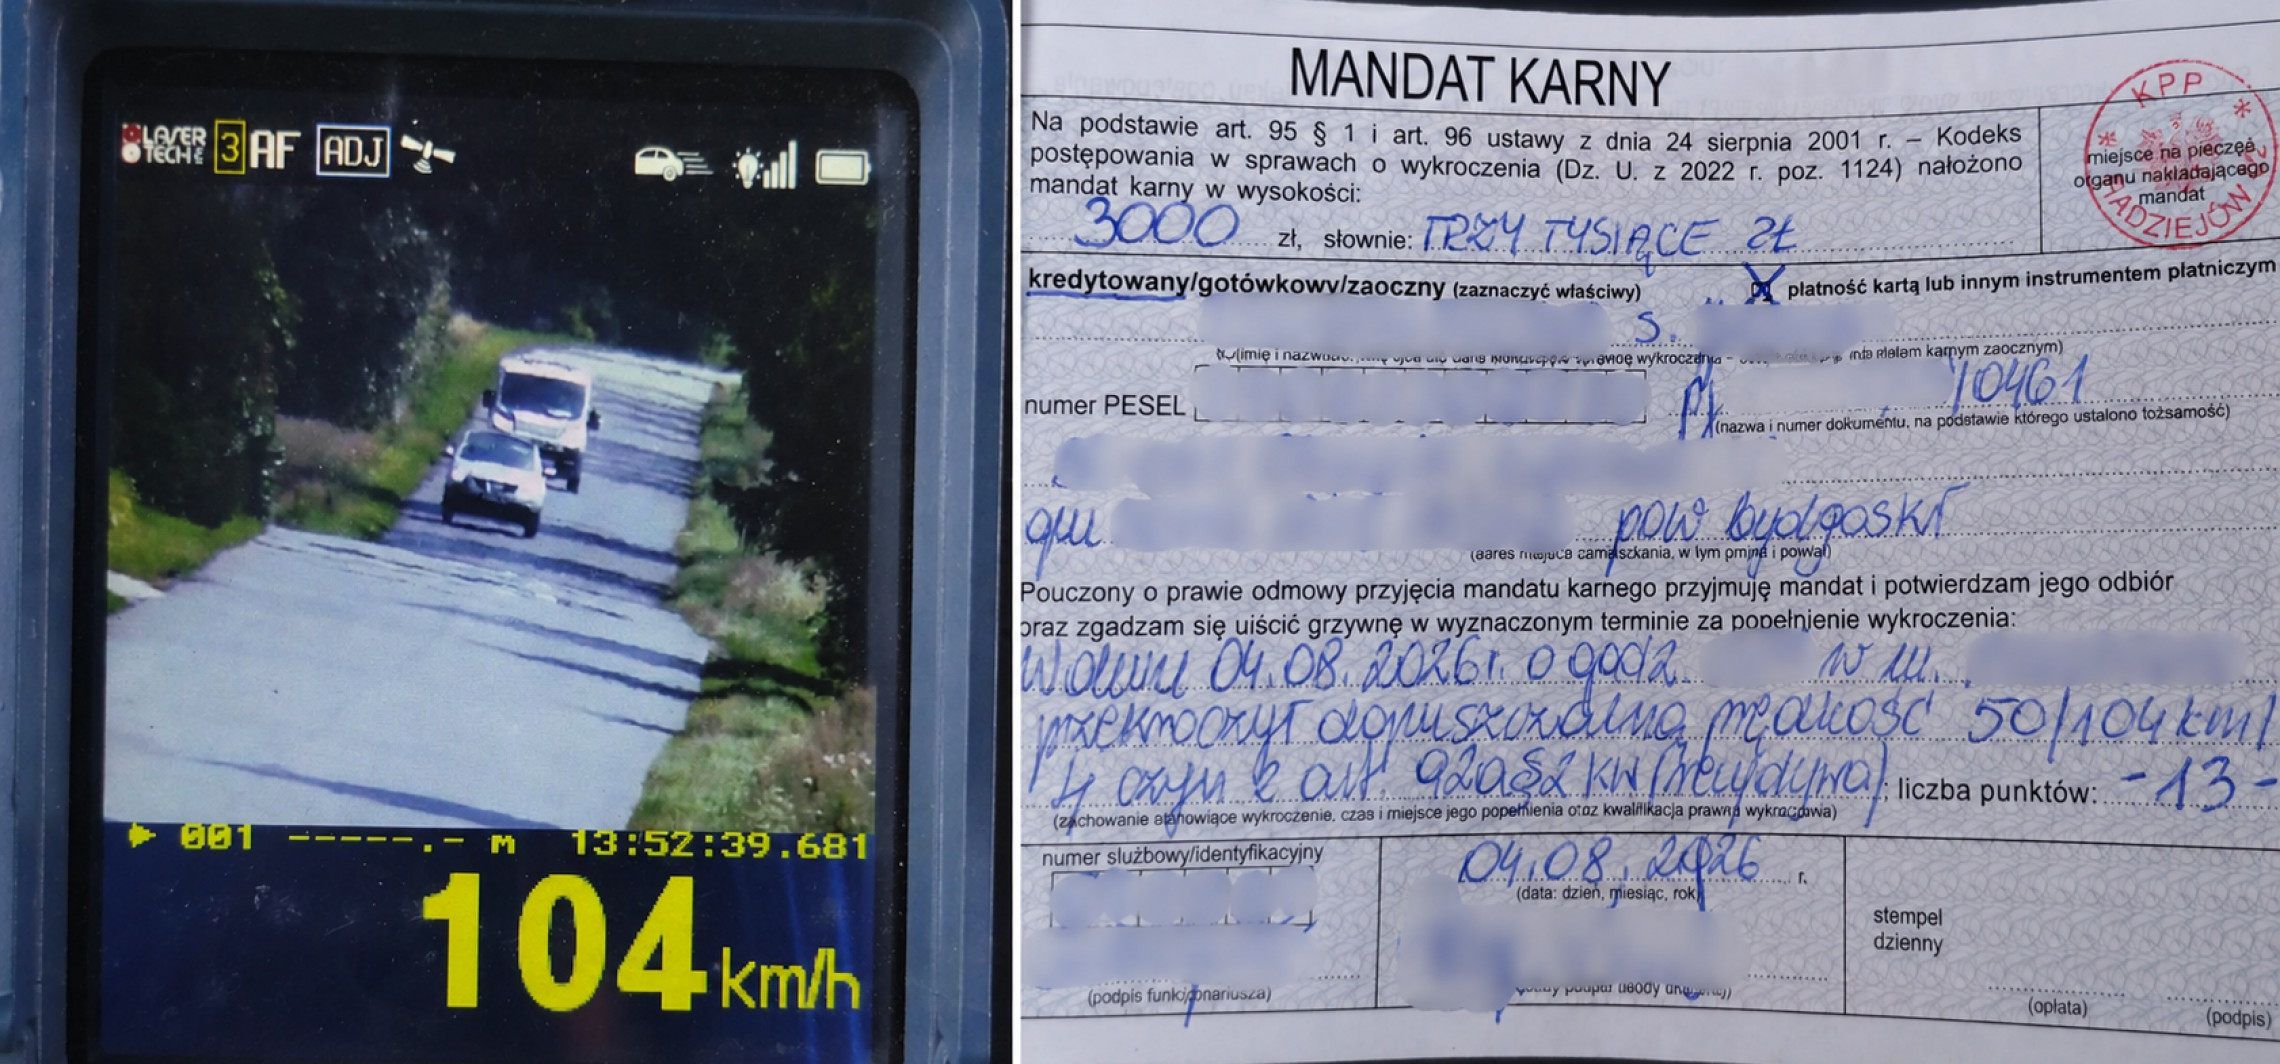 LASER TECH INC 3 AF ADJ
001 -----.- m 13:52:39.681
104 km/h
MANDAT KARNY
Na podstawie art. 95 § 1 i art. 96 ustawy z dnia 24 sierpnia 2001 r. – Kodeks
postępowania w sprawach o wykroczenia (Dz. U. z 2022 r. poz. 1124) nałożono
mandat karny w wysokości:
3000 zł, słownie: TRZY TYSIĄCE ZŁ
KPP RADZIEJÓW
miejsce na pieczęć
organu nakładającego
mandat
kredytowany/gotówkowy/zaoczny (zaznaczyć właściwy) X płatność kartą lub innym instrumentem płatniczym
s.
(imię i nazwisko, wykroczenia karnym zaocznym)
numer PESEL /0461
(nazwa i numer dokumentu, na podstawie którego ustalono tożsamość)
gm pow bydgoski
(adres miejsca zamieszkania, w tym gmina i powiat)
Pouczony o prawie odmowy przyjęcia mandatu karnego przyjmuję mandat i potwierdzam jego odbiór
oraz zgadzam się uiścić grzywnę w wyznaczonym terminie za popełnienie wykroczenia:
W dniu 04.08.2026r. o godz. w m.
przekroczył dopuszczalną prędkość 50/104 km/
h czyn z art. 92a§2 kw (recydywa); liczba punktów: -13-
(zachowanie stanowiące wykroczenie, czas i miejsce jego popełnienia oraz kwalifikacja prawna wykroczenia)
numer służbowy/identyfikacyjny
04.08.2026 r.
(data: dzień, miesiąc, rok)
stempel
dzienny
(podpis funkcjonariusza)
(opłata)
(podpis)